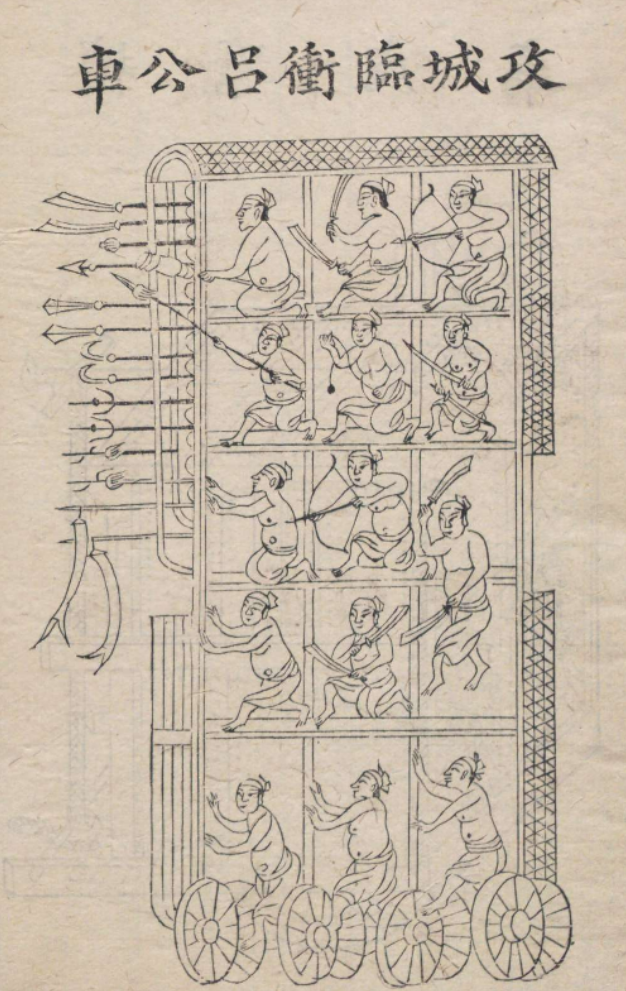 攻城臨衝呂公車